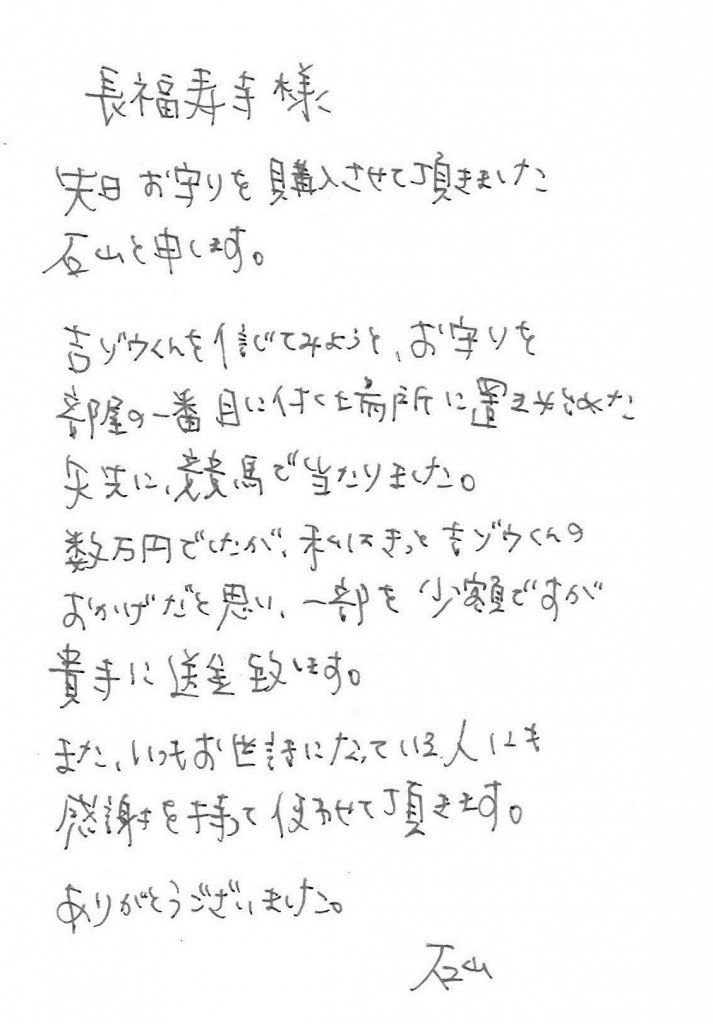 長福寿寺様
先日お守りを購入させて頂きました
石山と申します。
吉ゾウくんを信じてみようと、お守りを
部屋の一番目に付く場所に置き始めた
矢先に、競馬で当たりました。
数万円でしたが、私はきっと吉ゾウくんの
おかげだと思い、一部を少額ですが
貴寺に送金致します。
また、いつもお世話になっている人にも
感謝を持って使わせて頂きます。
ありがとうございました。
石山